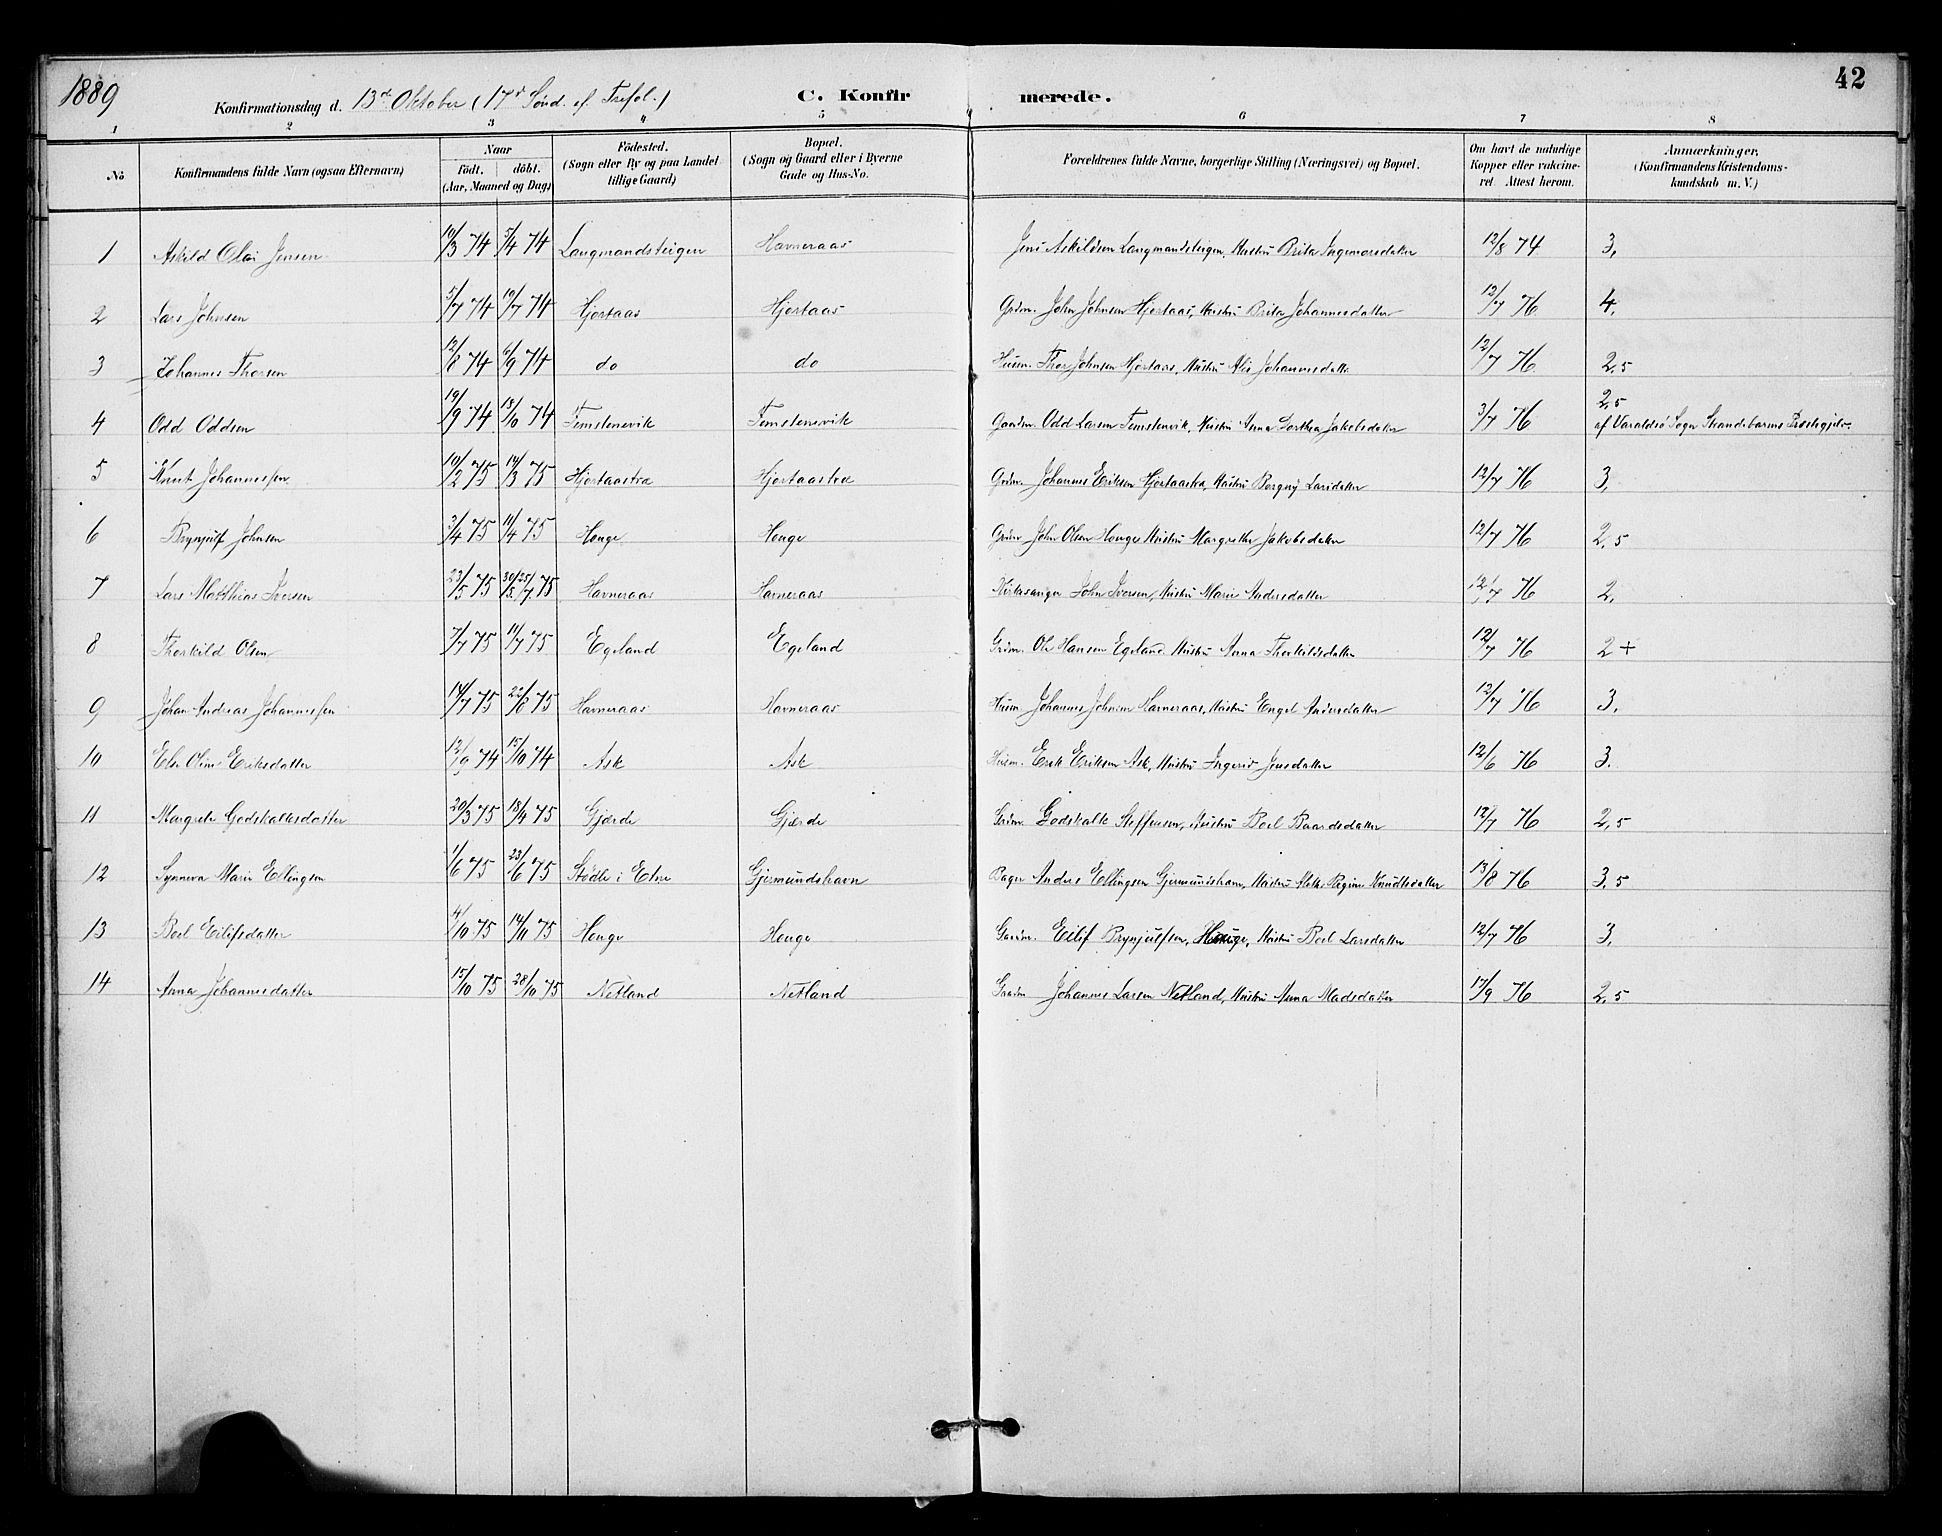 1889
42
Konfirmationsdag d. 13de Oktober (17de Sönd. ef. Trefol.)
C. Konfirmerede.
1 2 3 4 5 6 7 8
No
Konfirmandens fulde Navn (ogsaa Efternavn)
Naar födt. döbt. (Aar, Maaned og Dag)
Födested. (Sogn eller By og paa Landet tillige Gaard)
Bopæl. (Sogn og Gaard eller i Byerne Gade og Hus-No.
Forældrenes fulde Navne, borgerlige Stilling (Næringsvei) og Bopæl.
Om havt de naturlige Kopper eller vakcineret. Attest herom.
Anmerkninger, (Konfirmandens Kristendomskundskab m. V.)
1 Askild Olai Jensen 10/3 74 5/4 74 Langmandsteigen Havneraas Jens Askildsen Langmandsteigen, Hustru Brita Ingemorsdatter 12/8 74 3,
2 Lars Johnsen 5/7 74 19/7 74 Hjortaas Hjortaas Grdm. John Johnsen Hjortaas, Hustru Brita Johannesdatter 12/7 76 4,
3 Johannes Thorsen 12/8 74 6/9 74 do do Husm. Thor Johnsen Hjortaas, Hustru Johannesdatter 12/7 76 2,5
4 Odd Oddsen 19/9 74 13/10 74 Femstenevik Femstenevik Gaardm. Odd Larsen Femstenevik, Hustru Anna Dorthea Jakobsdatter 3/7 76 2,5
af Varaldsö Sogn Strandebarms Præstegjeld.
5 Knut Johannessen 10/2 75 14/3 75 Hjortaastræ Hjortaastræ Grdm. Johannes Eriksen Hjortaastræ, Hustru Larsdatter 12/7 76 3,
6 Brynjulf Johnsen 3/4 75 11/4 75 Houge Houge Grdm John Olsen Houge Hustru Margrethe Jakobsdatter 12/7 76 2,5
7 Lars Matthias Iversen 23/5 75 30/5 25/7 75 Havneraas Havneraas Kirkesanger John Iversen, Hustru Marie Andersdatter 12/7 76 2,
8 Thorkild Olsen 7/7 75 11/7 75 Egeland Egeland Grdm. Ole Hansen Egeland. Hustru Anna Thorkildsdatter 12/7 76 2+
9 Johan Andreas Johannessen 14/7 75 22/8 75 Havneraas Havneraas Husm Johannes Johnsen Havneraas, Hustru Engel Andersdatter 12/7 76 3,
10 Else Oline Eriksdatter 12/9 74 15/10 74 Ask Ask Husm. Erik Eriksen Ask, Hustru Ingerid Jensdatter 12/6 76 3.
11 Margrete Godskalksdatter 20/3 75 18/4 75 Gjærde Gjærde Grdm. Godskalk Steffensen, Hustru Boel Baardsdatter 12/7 76 2,5
12 Synneva Marie Ellingsen 1/6 75 23/6 75 Stødle i Etne Gjermundshavn Bager Anders Ellingsen Gjermundshavn, Hustru Regine Knudtsdatter 13/8 76 3,5
13 Boel Eilifsdatter 4/10 75 14/11 75 Houge Houge Gaardm. Eilif Brynjulfsen, Houge, Hustru Boel Larsdatter 12/7 76 3,
14 Anna Johannesdatter 15/10 75 28/10 75 Netland Netland Gaardm Johannes Larsen Netland, Hustru Anna Madsdatter 17/9 76 2,5